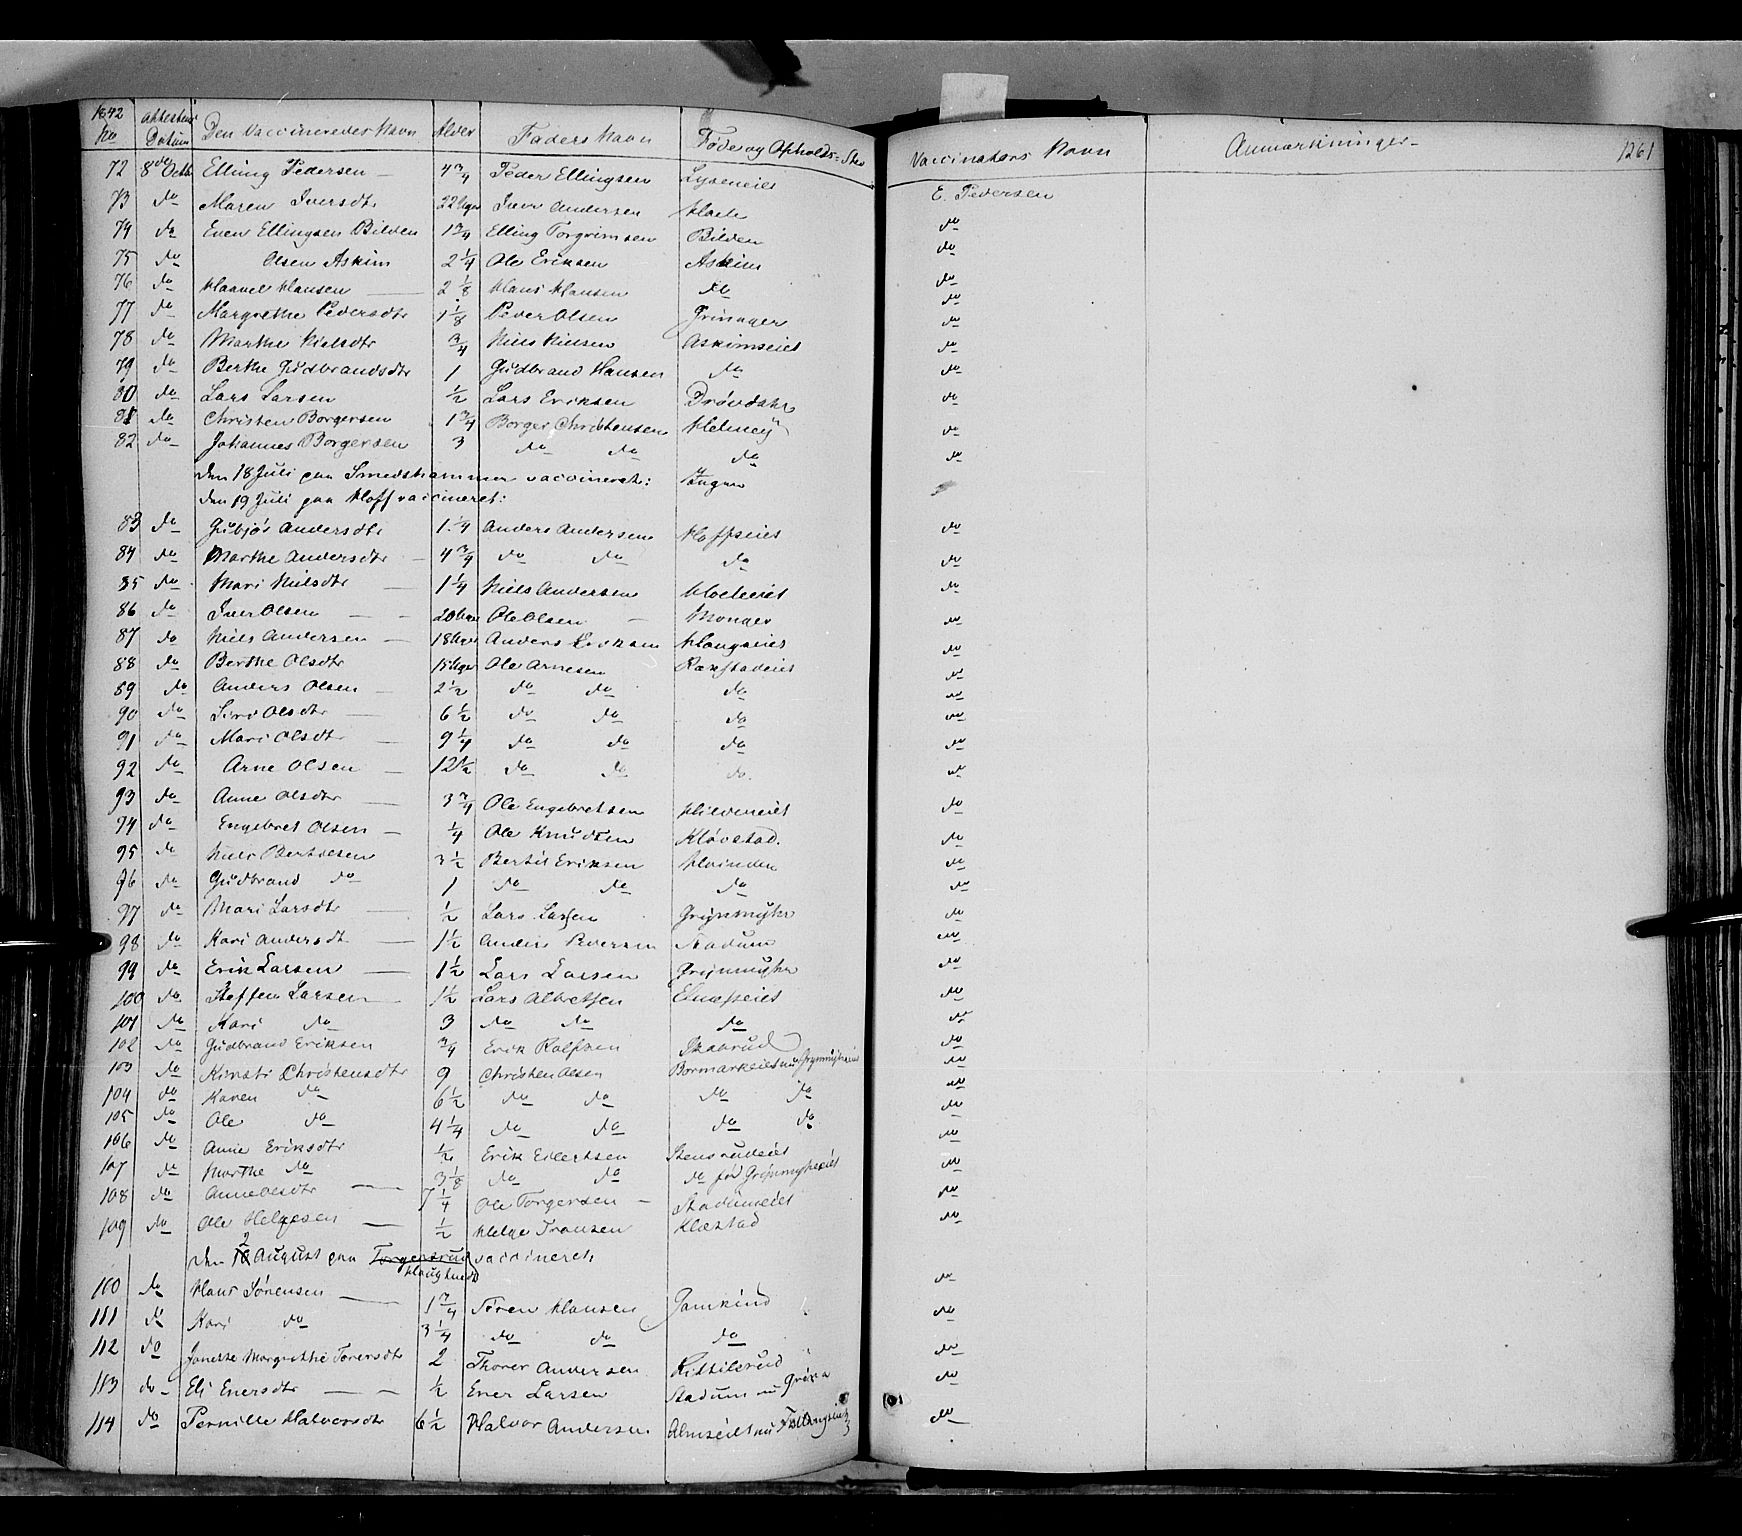 1842 Attestens Den Vaccineredes Navn Alder Faders Navn Føde og Opholds-Sted Vaccinatørs Navn Anmærkninger 1261
No Datum
72 8de Octb Elling Pedersen 4 3/4 Peder Ellingsen Lyseneiet E. Pedersen
73 do Maren Iversdtr 22 Uger Iver Andersen do
74 do Even Ellingsen Bilden 1 3/4 Elling Torgrimsen Bilden do
75 do Olsen Askim 2 1/4 Ole Eriksen Askim do
76 do Haavel Hansen 2 1/8 Hans Hansen do do
77 do Margrethe Pedersdtr 1 1/8 Peder Olsen Grinager do
78 do Marthe Nielsdtr 3/4 Niels Nielsen Askimseiet do
79 do Berthe Gudbrandsdtr 1 Gudbrand Hansen do do
80 do Lars Larsen 1/2 Lars Eriksen Drøvdahl do
81 do Christen Borgersen 1 3/4 Borger Christensen Helmey do
82 do Johannes Borgersen 3 do do do do
Den 18 Juli paa Smedshammer vaccineret: Ingen
den 19 Juli paa Hoff vaccineret:
83 do Gubjør Andersdtr 1 1/4 Anders Andersen Hoffseiet do
84 do Marthe Andersdtr 4 3/4 do do do do
85 do Mari Nielsdtr 1 1/4 Niels Andersen do
86 do Iver Olsen 20 Uger Ole Olsen Monger do
87 do Niels Andersen 18 Uger Anders Haugseiet do
88 do Berthe Olsdtr 15 Uger Ole Arnesen Raxstadeiet do
89 do Anders Olsen 2 1/2 do do do do
90 do Siri Olsdtr 6 1/2 do do do do
91 do Mari Olsdtr 9 1/4 do do do do
92 do Arne Olsen 12 1/2 do do do do
93 do Anne Olsdtr 3 3/4 Ole Engebretsen Hildeneiet do
94 do Engebret Olsen 1/4 Ole Knudsen Kløvstad. do
95 do Niels Bertelsen 3 1/2 Bertil Eriksen Hvinden do
96 do Gudbrand do 1 do do do do
97 do Mari Larsdtr 1/2 Lars Larsen Grijnmyhr do
98 do Kari Andersdtr 1 1/2 Anders Pedersen Stadum do
99 do Erik Larsen 1 1/2 Lars Larsen Grijnmyhr do
100 do Steffen Larsen 1 1/2 Lars Albretsen Elnæseiet do
101 do Kari do 3 do do do do
102 do Gudbrand Eriksen 3/4 Erik Rolfsen Skabrud do
103 do Kirsti Christensdtr 9 Christen Olsen Bormarkeiet nu Grynmyhreiet do
104 do Karen do 6 1/2 do do do do do
105 do Ole do 4 1/4 do do do do do
106 do Anne Eriksdtr 1/2 Erik Eilertsen Stensrudeiet do
107 do Marthe do 3 1/8 do do do fød Grijnmyhreiet do
108 do Anne Olsdtr 7 1/4 Ole Torgersen Stadumeiet do
109 do Ole Helgesen 1/2 Helge Transen Klæstad do
2
Den 10 August paa Torgersrud vaccineret
Haugtuedt
110 do Hans Sørensen 1 3/4 Søren Hansen Gamkind do
111 do Kari do 3 1/4 do do do do
112 do Janette Margrethe Torersdtr 2 Thorer Andersen Kittilsrud do
113 do Eli Eversdtr 1/2 Ever Larsen Stadum nu Grina do
114 do Pernille Halvorsdtr 6 1/2 Halvor Andersen Almseiet nu do